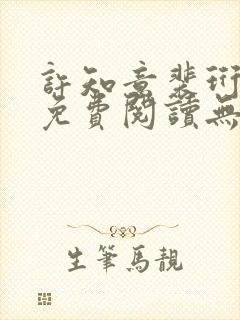 許知意裴珩
免費閱讀無
生筆馬靚